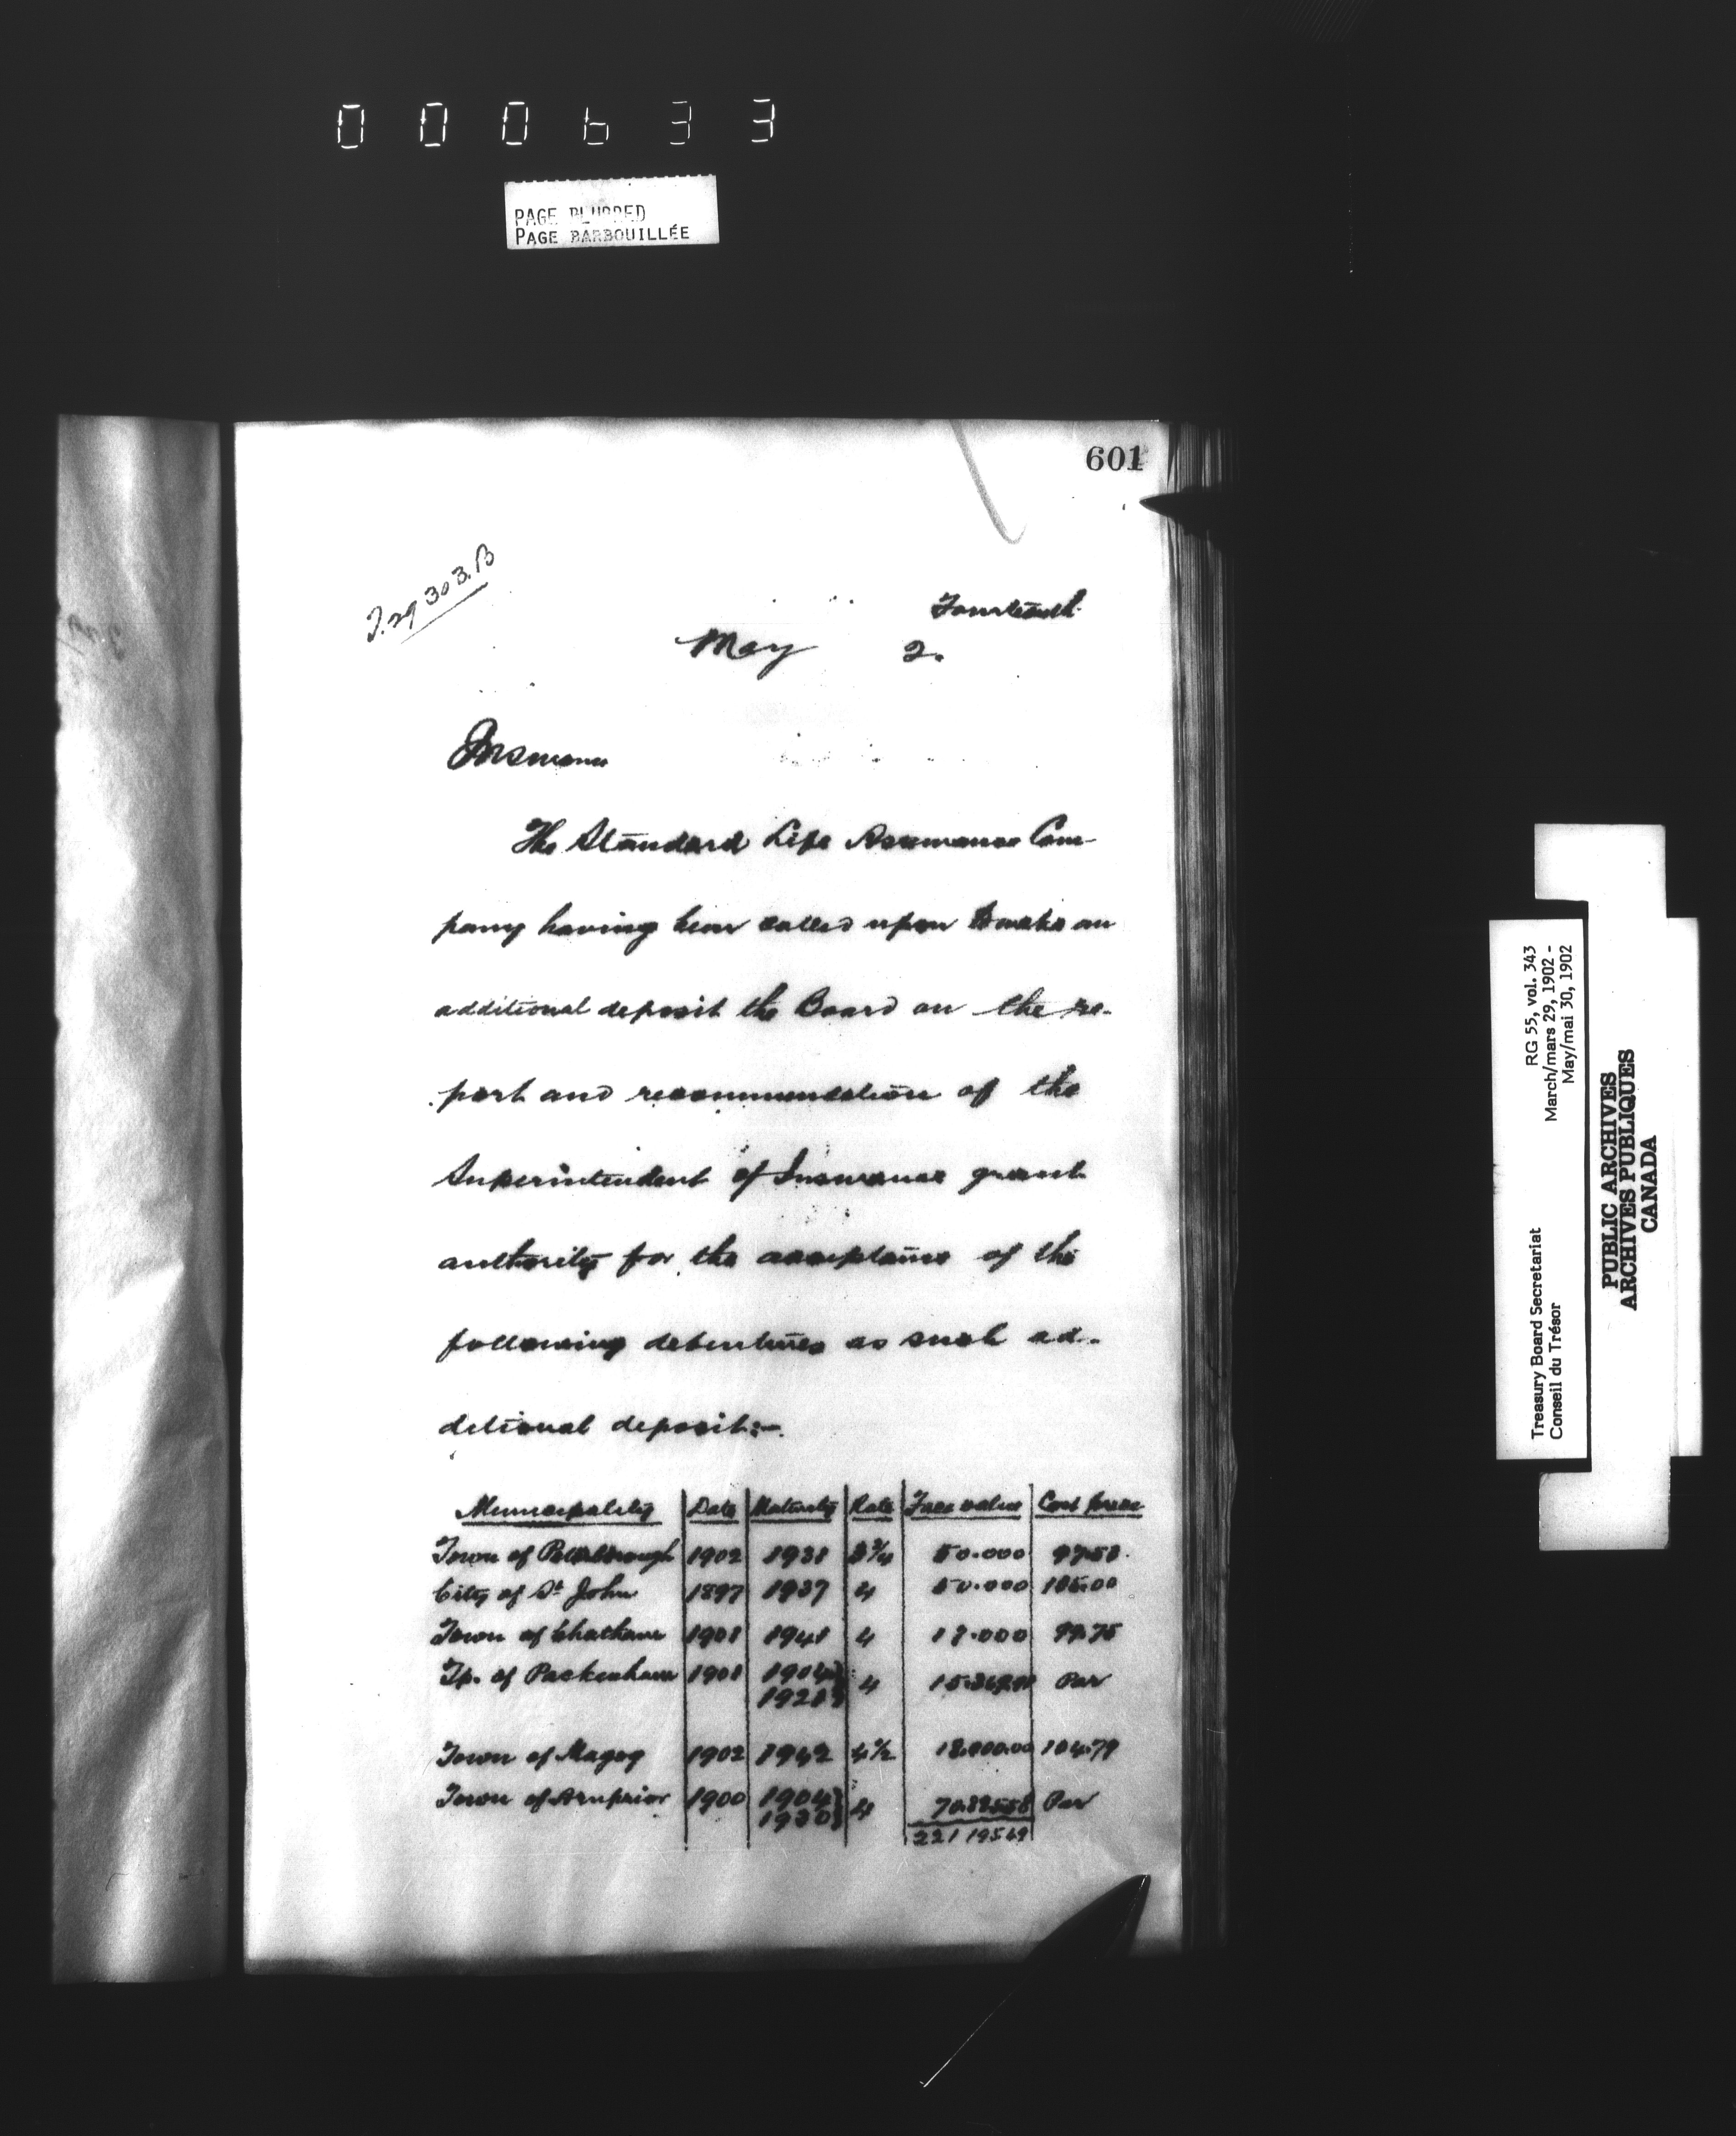 000633
PAGE BLURRED
PAGE BARBOUILLÉE
601
T.29303.B
Fourteenth
May 2.
Insurance
The Standard Life Assurance Com-
pany having been called upon to make an
additional deposit the Board on the re-
port and recommendation of the
Superintendent of Insurance grant
authority for the acceptance of the
following debentures as such ad-
ditional deposit:-
Municipality Date Maturity Rate Face value Cost price
Town of Peterborough 1902 1931 3¾ 50.000 97.58
City of St John 1897 1937 4 50.000 105.00
Town of Chatham 1901 1941 4 17.000 99.75
Tp. of Packenham 1901 1904 } 4 Par
1921 }
Town of Magog 1902 1942 4½ 18.000.00 104.79
Town of Arnprior 1900 1904 } 4 Par
1930 }
Treasury Board Secretariat RG 55, vol. 343
Conseil du Trésor March/mars 29, 1902 -
May/mai 30, 1902
PUBLIC ARCHIVES
ARCHIVES PUBLIQUES
CANADA